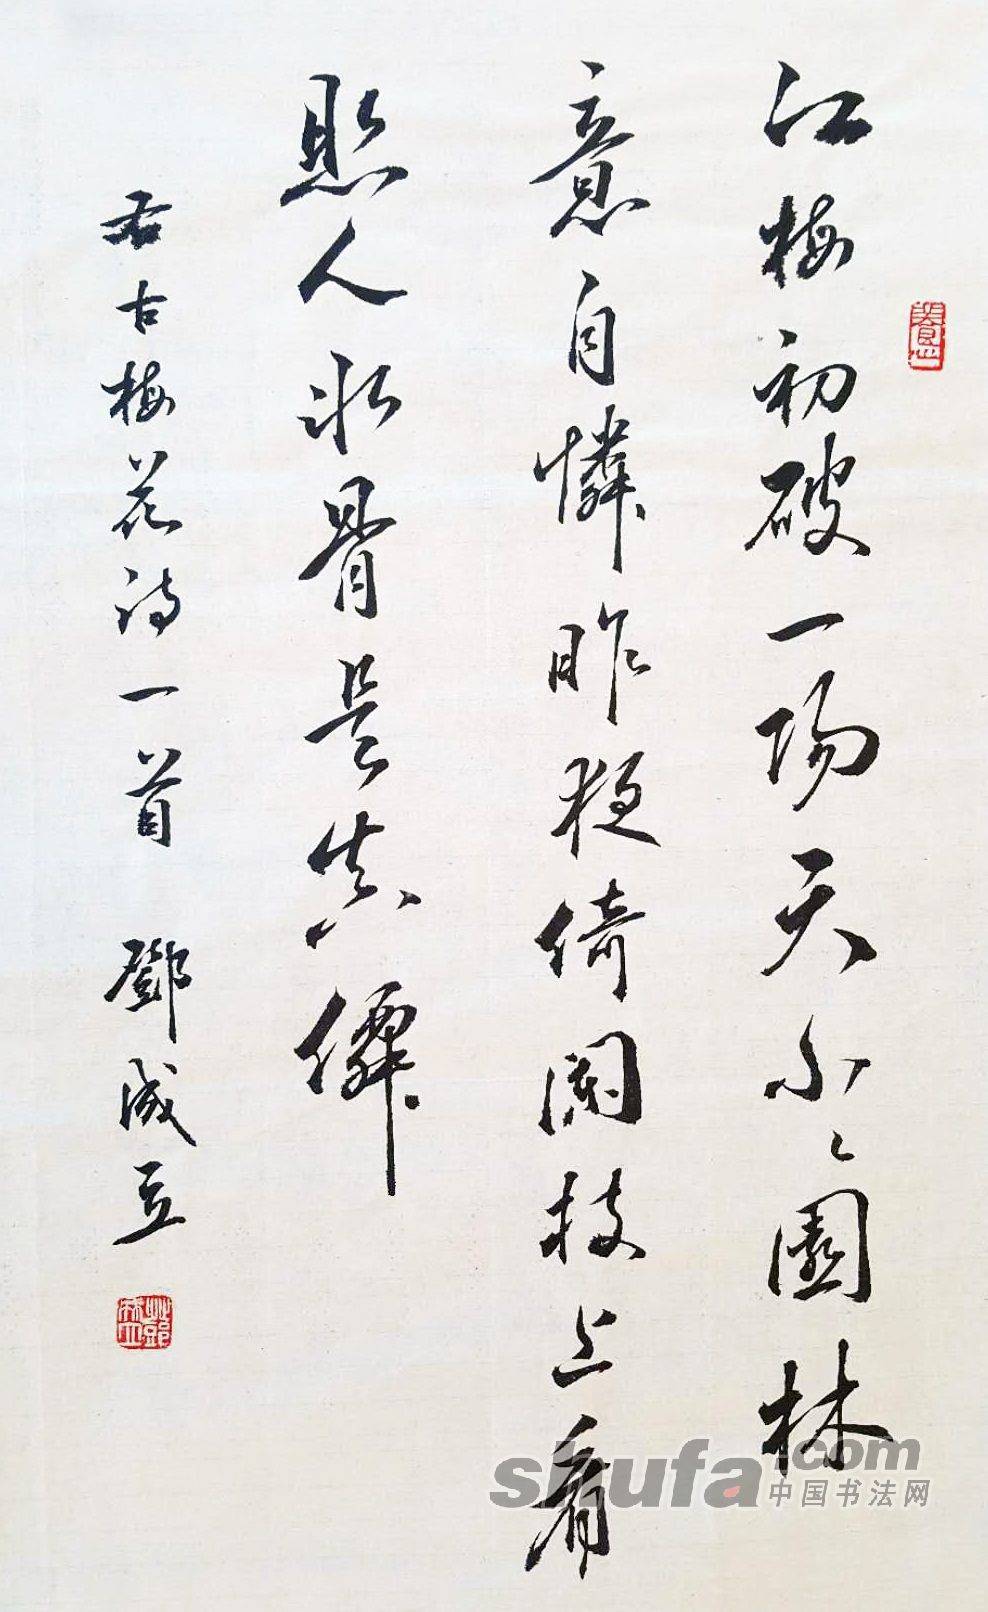 江梅初破一陽天小小園林
意自憐昨夜倚闌枝上看
照人冰骨是真僊
右古梅花诗一首 鄧成立
shufa.com
中国书法网